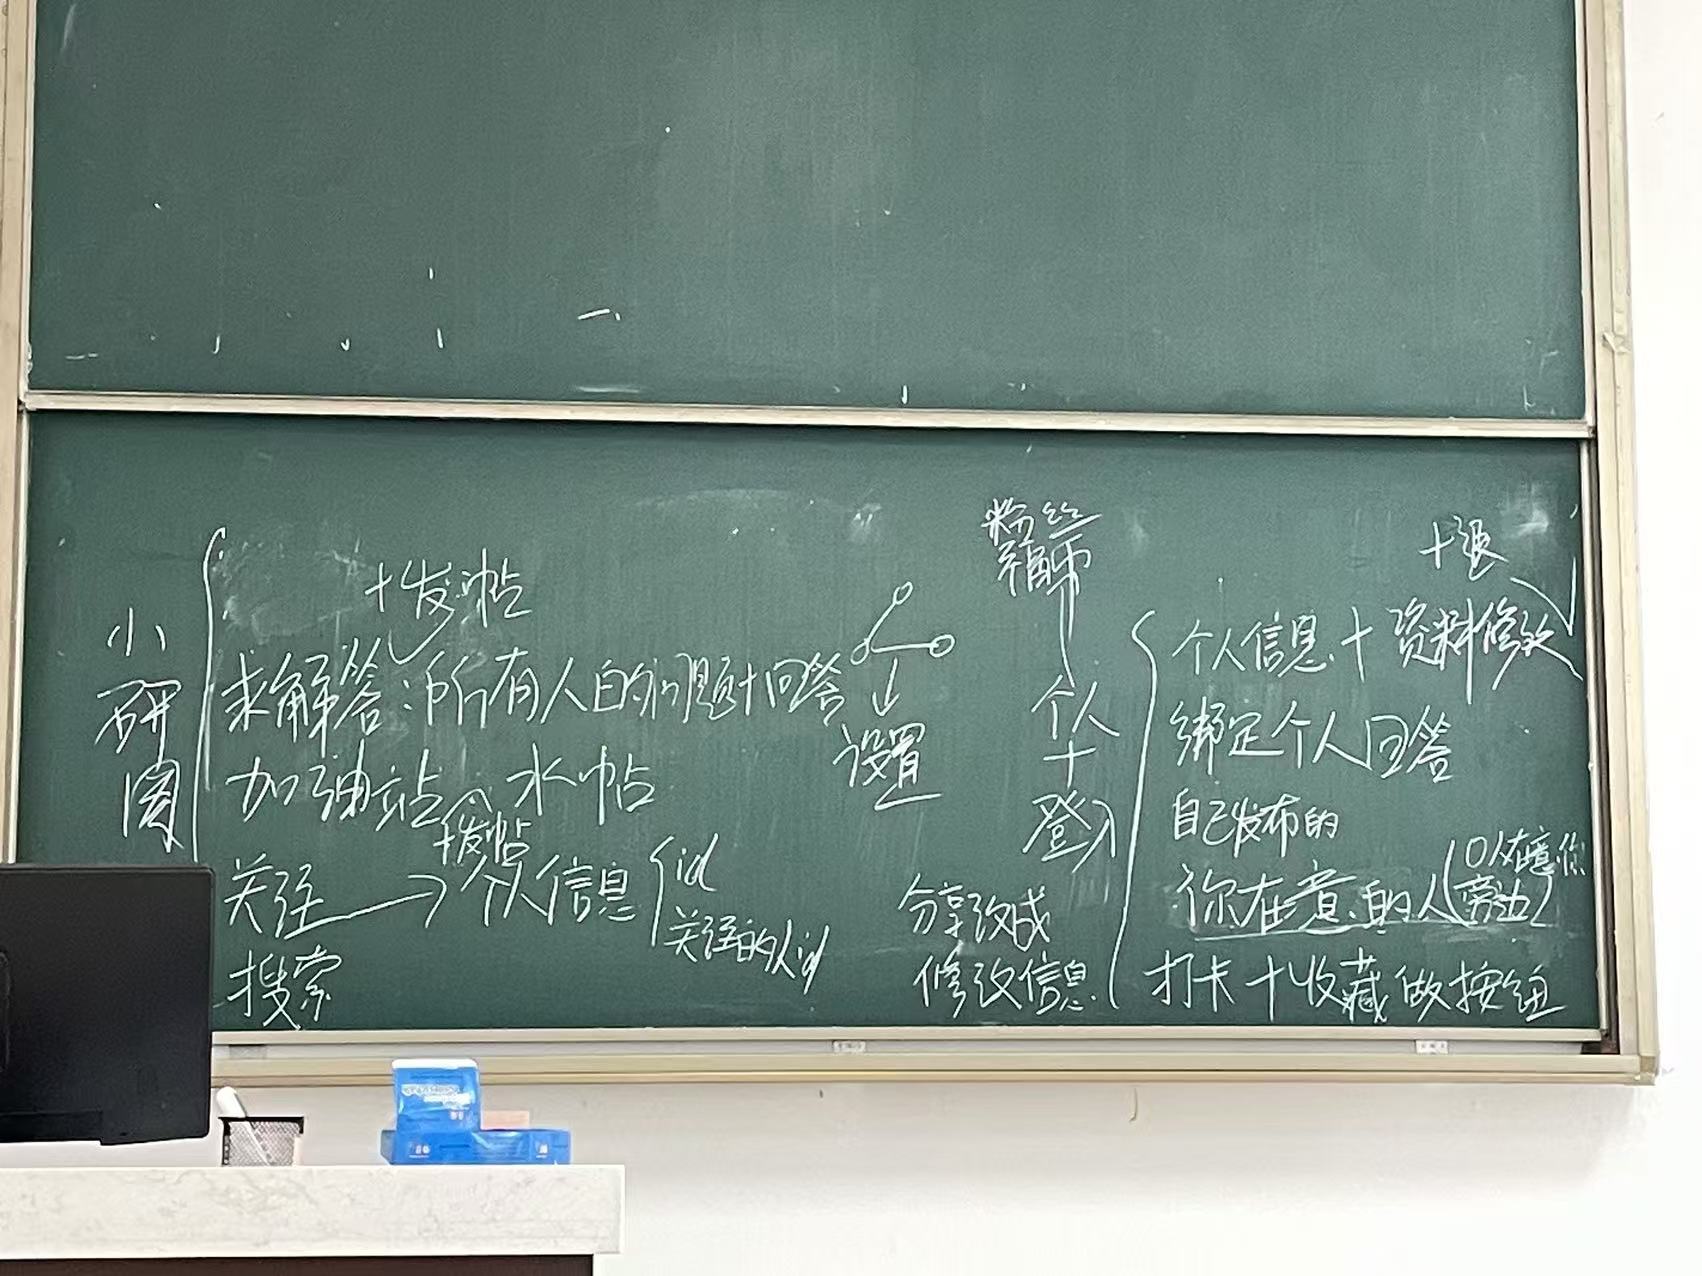 小研圈
+发帖
求解答：所有人的问题+回答
加油站 水帖
+发帖
关注 → 个人信息 { id
关注的人id
搜索
设置
粉丝
个人
+
登入
分享改成
修改信息
+退
个人信息+资料修改
绑定个人回答
自己发布的
你在意的人（0人在意你
旁边）
打卡+收藏做按钮